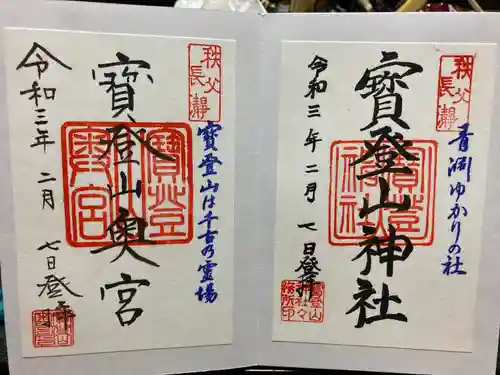 秩父
長瀞
青淵ゆかりの社
寳登山神社
寳登
神社
令和三年二月七日登拝
寳登山
神社々
務所印
秩父
長瀞
寳登山は千古乃霊場
寳登山奥宮
寳登
奥宮
令和三年二月七日登拝